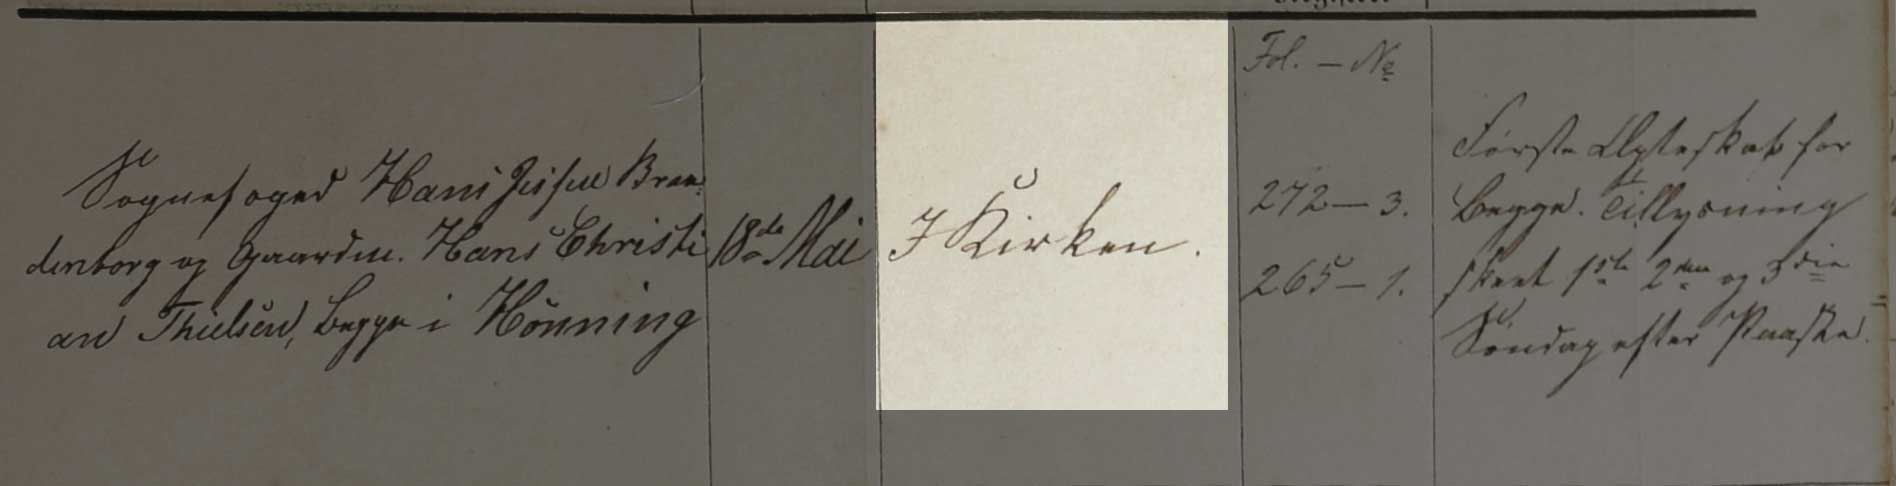 Fol. – No
Sognefoged Hans Jessen Bran-
denborg og Gaardm. Hans Christi
an Thielsen, Begge i Hönning
18de Mai
I Kirken.
272 – 3.
265 – 1.
Første Ægteskab for
Begge. Tillysning
skeet 1ste 2den og 3die
Søndag efter Paaske.